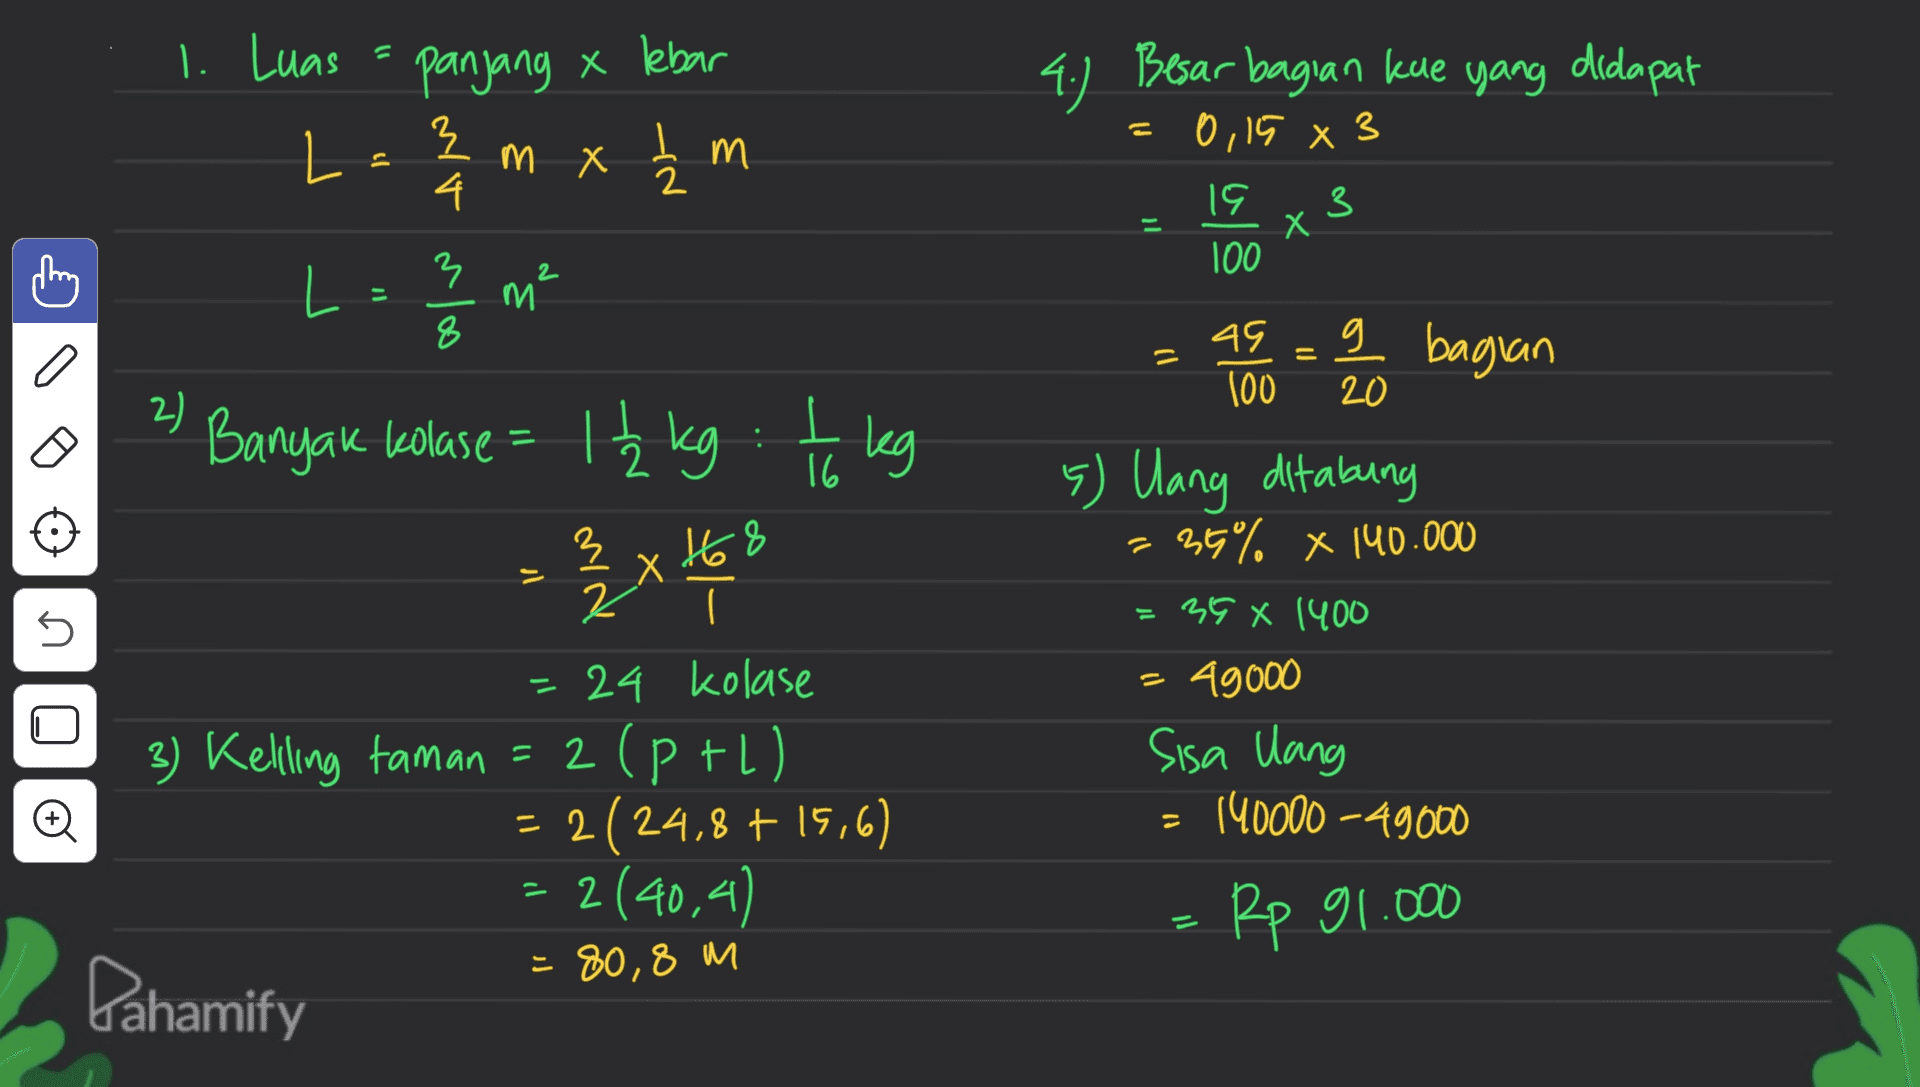 1. Luas = panjang x lebar
L = 3/4 m x 1/2 m
L = 3/8 m²
2) Banyak kolase = 1 1/2 kg : 1/16 kg
= 3/2 x 16/1 8
= 24 kolase
3) Keliling taman = 2 (p + l)
= 2 (24,8 + 15,6)
= 2 (40,4)
= 80,8 m
4.) Besar bagian kue yang didapat
= 0,15 x 3
= 15/100 x 3
= 45/100 = 9/20 bagian
5) Uang ditabung
= 35% x 140.000
= 35 x 1400
= 49000
Sisa Uang
= 140000 - 49000
= Rp 91.000
Pahamify